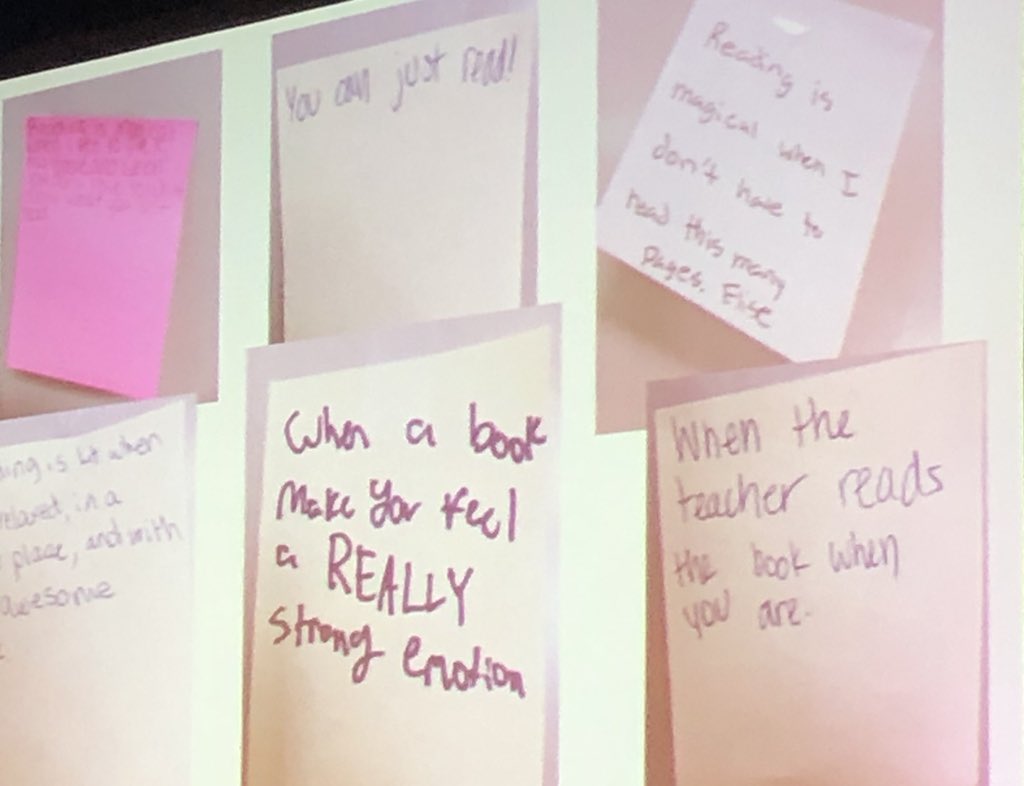 You can just read!
Reading is
magical when I
don't have to
read this many
pages. Else
ing is lit when
relaxed, in a
place, and with
awesome
When a book
Make you feel
a REALLY
strong emotion
When the
teacher reads
the book when
you are.